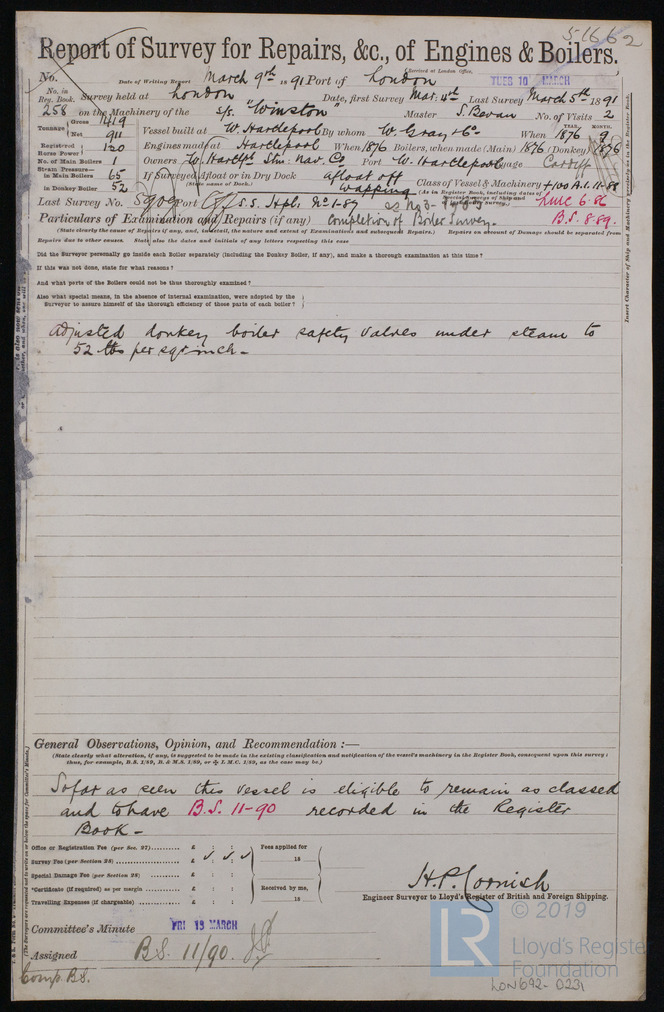 51662
Report of Survey for Repairs, &c., of Engines & Boilers.
(Received at London Office,
No. Date of Writing Report March 9th 1891 Port of London TUES 10 MARCH
No. in Reg. Book. Survey held at London Date, first Survey Mar: 4th Last Survey March 5th 1891
258 on the Machinery of the s/s. "Winston" Master S. Bevan No. of Visits 2
Tonnage Gross 1419 Net 911 Vessel built at W. Hartlepool By whom W. Gray & Co. When YEAR. 1876 MONTH.
Registered Horse Power 120 Engines made at Hartlepool When 1876 Boilers, when made (Main) 1876 (Donkey) 1876
No. of Main Boilers 1 Owners W. Hartlpl. Stm: Nav. Co Port W. Hartlepool Cardiff
Steam Pressure— in Main Boilers 65 If Surveyed Afloat or in Dry Dock afloat off Wapping
(State name of Dock.)
in Donkey Boiler 52 Class of Vessel & Machinery +100 A1. 11-88
(As in Register Book, including dates of Special surveys of Ship and Machinery survey.) LMC 6.86
Last Survey No. Port S.S. Hpl. No 1-87 B.S. 8.89.
Particulars of Examination and Repairs (if any) Completion of Boiler Survey.
(State clearly the cause of Repairs if any, and, in detail, the nature and extent of Examinations and subsequent Repairs.) Repairs on account of Damage should be separated from
Repairs due to other causes. State also the dates and initials of any letters respecting this case
Did the Surveyor personally go inside each Boiler separately (including the Donkey Boiler, if any), and make a thorough examination at this time?
If this was not done, state for what reasons?
And what parts of the Boilers could not be thus thoroughly examined?
Also what special means, in the absence of internal examination, were adopted by the
Surveyor to assure himself of the thorough efficiency of those parts of each boiler?
Adjusted donkey boiler safety valves under steam to
52 lbs per sqr inch.
General Observations, Opinion, and Recommendation :—
(State clearly what alteration, if any, is suggested to be made in the existing classification and notification of the vessel's machinery in the Register Book, consequent upon this survey ;
thus, for example, B.S. 1/89, B. & M.S. 1/89, or L.M.C. 1/89, as the case may be.)
So far as seen this vessel is eligible to remain as classed
and to have B.S. 11-90 recorded in the Register
Book -
Office or Registration Fee (per Sec. 27) £ : : Fees applied for
Survey Fee (per Section 28) £ : : 18
Special Damage Fee (per Section 28) £ : :
*Certificate (if required) as per margin £ : : Received by me,
Travelling Expenses (if chargeable) £ : : 18
H. P. Cornish
Engineer Surveyor to Lloyd's Register of British and Foreign Shipping.
Committee's Minute FRI 13 MARCH
Assigned B.S. 11/90.
Comp. B.S.
Insert Character of Ship and Machinery precisely as in the Register Book.
LR
© 2019
Lloyd's Register
Foundation
LON692-0231